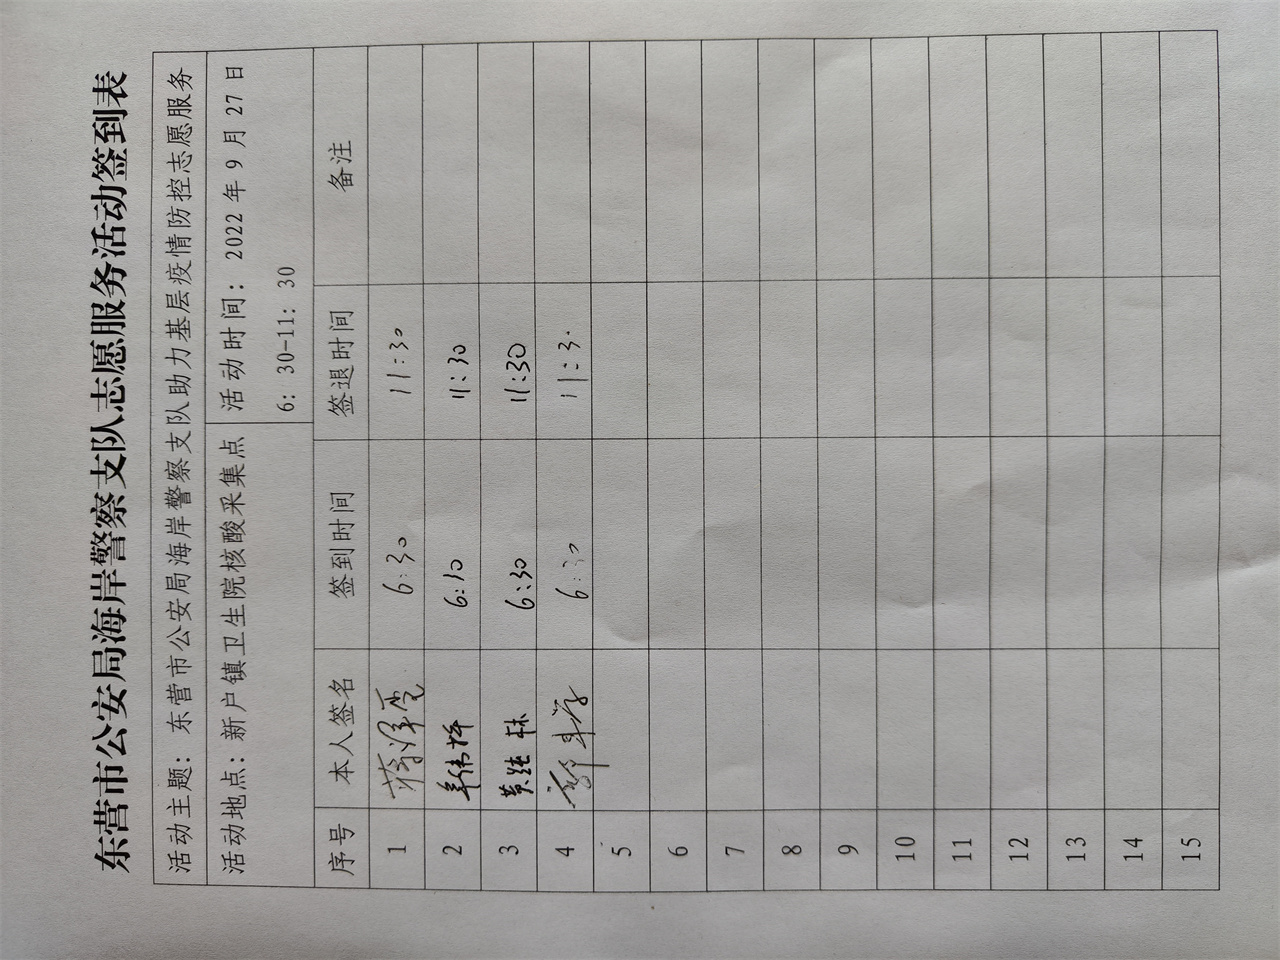 东营市公安局海岸警察支队志愿服务活动签到表
活动主题：东营市公安局海岸警察支队助力基层疫情防控志愿服务
活动地点：新户镇卫生院核酸采集点 活动时间：2022 年 9 月 27 日
6：30-11：30
序号 本人签名 签到时间 签退时间 备注
1 6:30 11:30
2 6:30 11:30
3 6:30 11:30
4 6:30 11:30
5
6
7
8
9
10
11
12
13
14
15